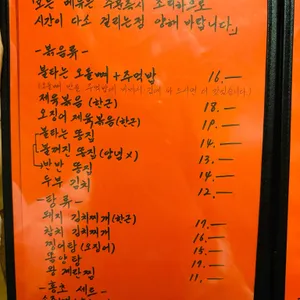 모든 메뉴는 주문즉시 조리하므로
시간이 다소 걸리는점 양해 바랍니다.
- 볶음류 -
불타는 오돌뼈 + 주먹밥 16.—
제육볶음 (한근) 18.—
오징어 제육볶음 (한근) 19.—
불타는 똥집 14.—
불꺼진 똥집 (양념 x) 13.—
반반 똥집 14.—
두부 김치 12.—
- 탕류 -
돼지 김치찌개 (한근) 17.—
참치 김치찌개 16.—
찌어탕 (오징어) 15.—
왕 계란찜 11.—
- 홍초 세트 -